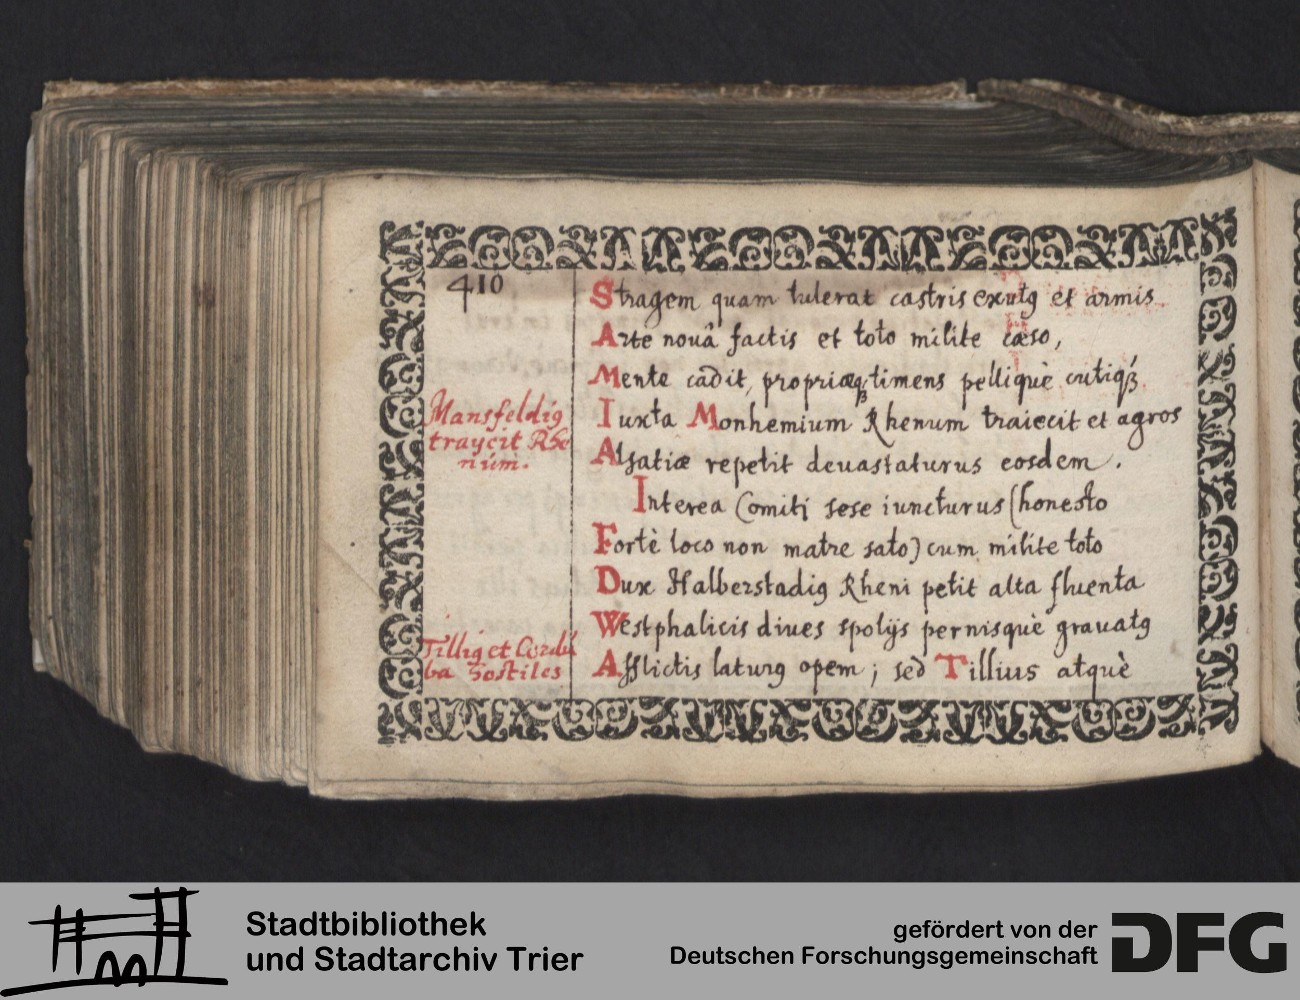 410
Stragem quam tulerat castris exutꝰ et armis
Arte nouâ factis et toto milite cæso,
Mente cadit, propriæqꝫ timens pelliquè cutiqꝫ́
Mansfeldiꝰ
traycit Rhe
num.
Iuxta Monhemium Rhenum traiecit et agros
Alsatiæ repetit deuastaturus eosdem.
Interea Comiti sese iuncturus (honesto
Fortè loco non matre sato) cum milite toto
Dux Halberstadiꝰ Rheni petit alta fluenta
Westphalicis diues spolijs pernisquè grauatꝰ
Tilliꝰ et Cordu
ba hostiles
Afflictis laturꝰ opem; sed Tillius atquè
Stadtbibliothek
und Stadtarchiv Trier
gefördert von der
Deutschen Forschungsgemeinschaft
DFG